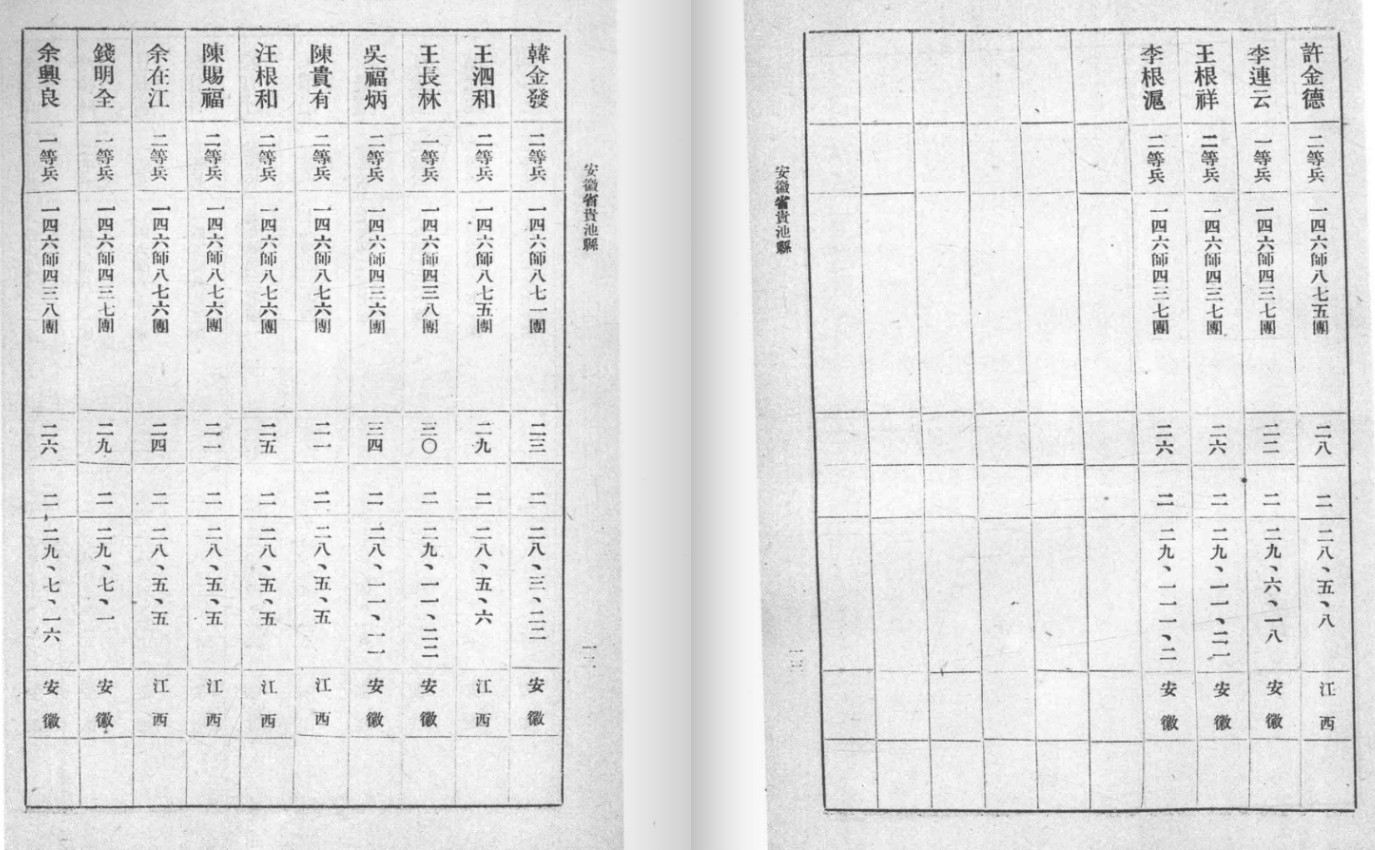 安徽省貴池縣
一二
韓金發 二等兵 一四六師八七一團 二三 二 二八、三、二二 安徽
王泗和 二等兵 一四六師八七五團 二九 二 二八、五、六 江西
王長林 一等兵 一四六師四三八團 三〇 二 二九、一一、二二 安徽
吳福炳 二等兵 一四六師四三六團 三四 二 二八、一一、一一 安徽
陳貴有 二等兵 一四六師八七六團 二一 二 二八、五、五 江西
汪根和 二等兵 一四六師八七六團 二五 二 二八、五、五 江西
陳賜福 二等兵 一四六師八七六團 二一 二 二八、五、五 江西
余在江 二等兵 一四六師八七六團 二四 二 二八、五、五 江西
錢明全 一等兵 一四六師四三七團 二九 二 二九、七、一 安徽
余興良 一等兵 一四六師四三八團 二六 二 二九、七、一六 安徽
許金德 二等兵 一四六師八七五團 二八 二 二八、五、八 江西
李連云 一等兵 一四六師四三七團 二二 二 二九、六、一八 安徽
王根祥 二等兵 一四六師四三七團 二六 二 二九、一一、二一 安徽
李根滬 二等兵 一四六師四三七團 二六 二 二九、一一一、二 安徽
安徽省貴池縣
一三